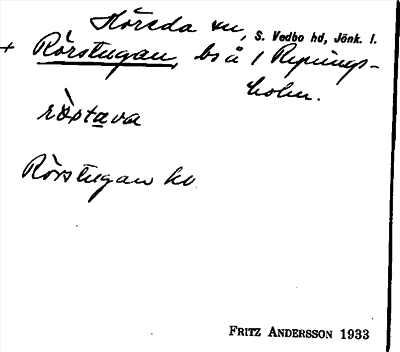 Höreda sn, S. Vedbo hd, Jönk. l.
+ Rörstugan, bs å / Repninge-
holm.
röstava
Rörstugan hv
FRITZ ANDERSSON 1933